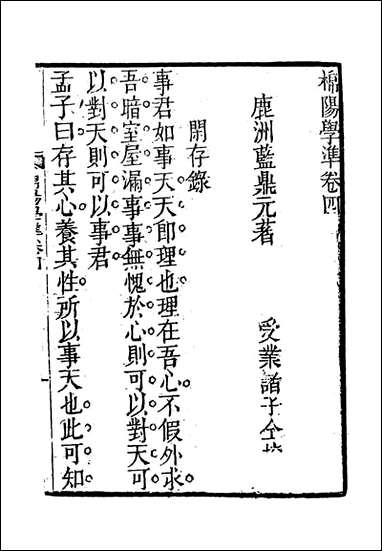 棉陽學準卷四
鹿洲藍鼎元著
受業諸子仝
閑存錄
事君如事天天即理也理在吾心不假外求
吾暗室屋漏事事無愧於心則可以對天可
以對天則可以事君
孟子曰存其心養其性所以事天也此可知